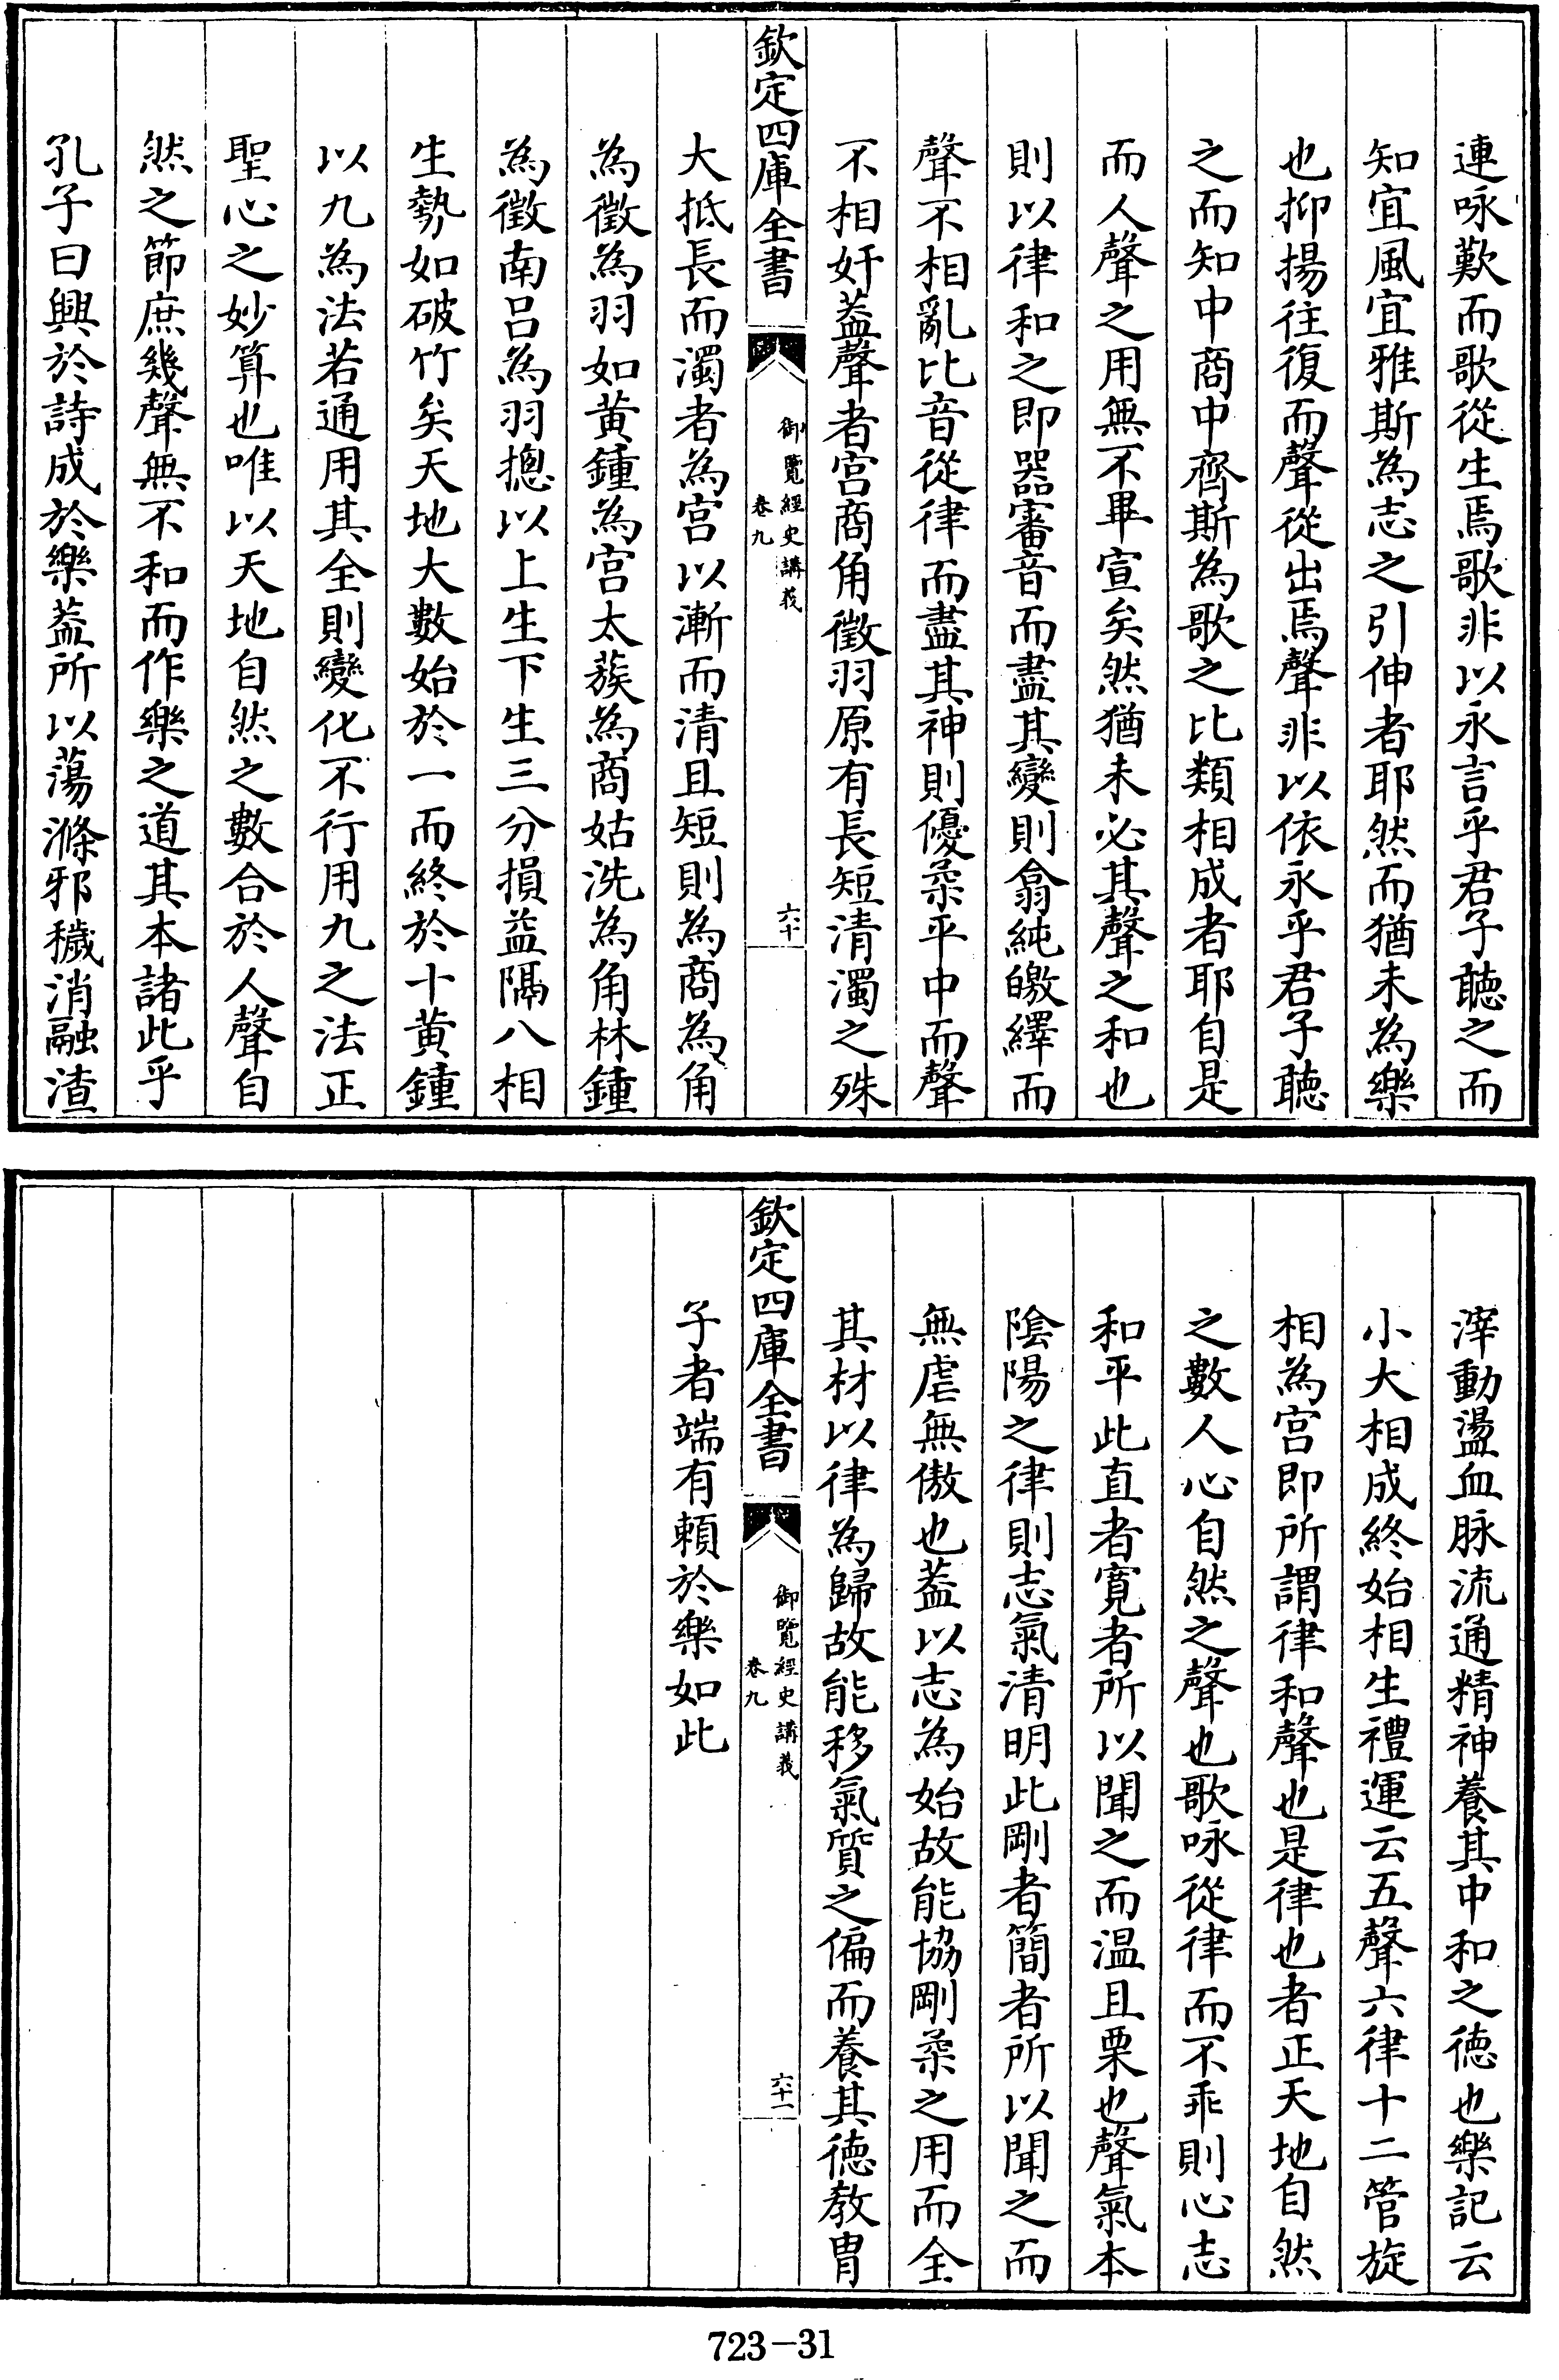 連咏歎而歌從生焉歌非以永言乎君子聽之而
知宜風宜雅斯為志之引伸者耶然而猶未為樂
也抑揚往復而聲從出焉聲非以依永乎君子聽
之而知中商中齊斯為歌之比類相成者耶自是
而人聲之用無不畢宣矣然猶未必其聲之和也
則以律和之即器審音而盡其變則翕純皦繹而
聲不相亂比音從律而盡其神則優柔平中而聲
不相奸葢聲者宫商角徵羽原有長短清濁之殊
欽定四庫全書
御覽經史講義
卷九
六十
大抵長而濁者為宫以漸而清且短則為商為角
為徵為羽如黄鍾為宫太蔟為商姑洗為角林鍾
為徵南吕為羽摠以上生下生三分損益隔八相
生勢如破竹矣天地大數始於一而終於十黄鍾
以九為法若通用其全則變化不行用九之法正
聖心之妙算也唯以天地自然之數合於人聲自
然之節庶幾聲無不和而作樂之道其本諸此乎
孔子曰興於詩成於樂葢所以蕩滌邪穢消融渣
滓動盪血脉流通精神養其中和之德也樂記云
小大相成終始相生禮運云五聲六律十二管旋
相為宫即所謂律和聲也是律也者正天地自然
之數人心自然之聲也歌咏從律而不乖則心志
和平此直者寛者所以聞之而温且栗也聲氣本
陰陽之律則志氣清明此剛者簡者所以聞之而
無虐無傲也葢以志為始故能協剛柔之用而全
其材以律為歸故能移氣質之偏而養其德教胄
欽定四庫全書
御覽經史講義
卷九
六十一
子者端有頼於樂如此
723-31